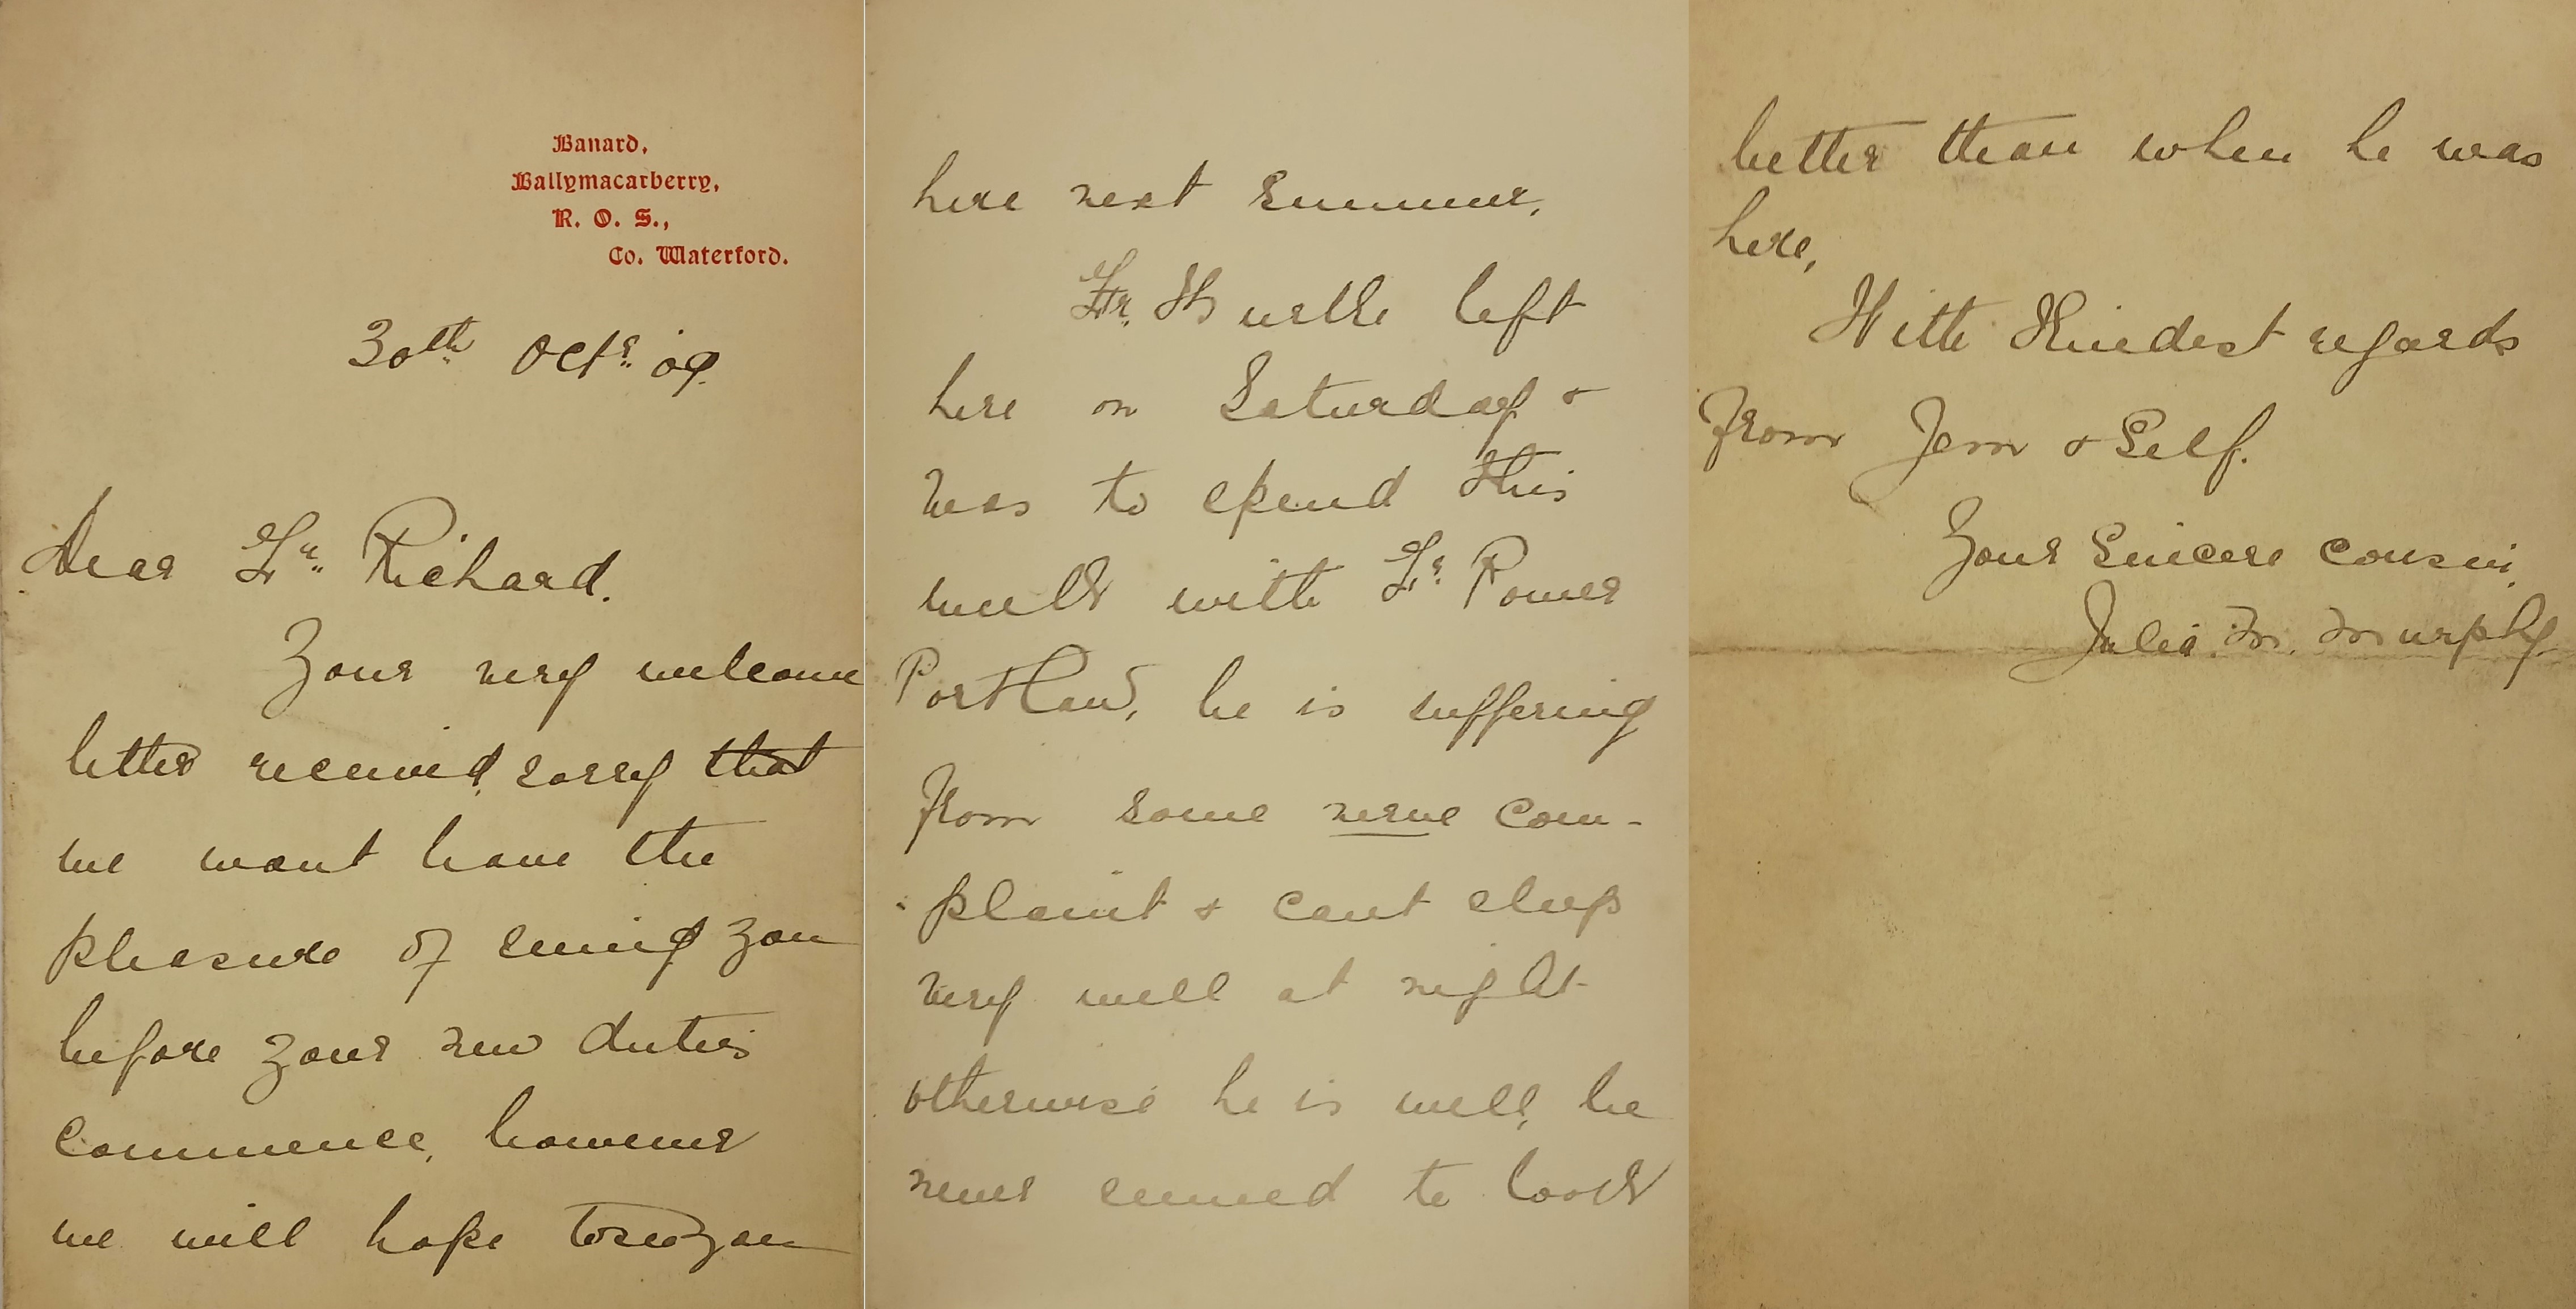 Banard,
Ballymacarberry,
R. O. S.,
Co. Waterford.
30th Octr. 09.
Dear Fr. Richard.
Your very welcome
letter received, sorry that
we wont have the
pleasure of seeing you
before your new duties
commence, however
we will hope to see you
here next summer.
Fr. Burke left
here on Saturday &
was to spend this
week with Fr. Power
Portlaw, he is suffering
from some nerve com-
plaint & cant sleep
very well at night
otherwise he is well, he
never seemed to look
better than when he was
here,
With Kindest regards
from Jem & Self.
Your Sincere cousin,
Julia. M. Murphy